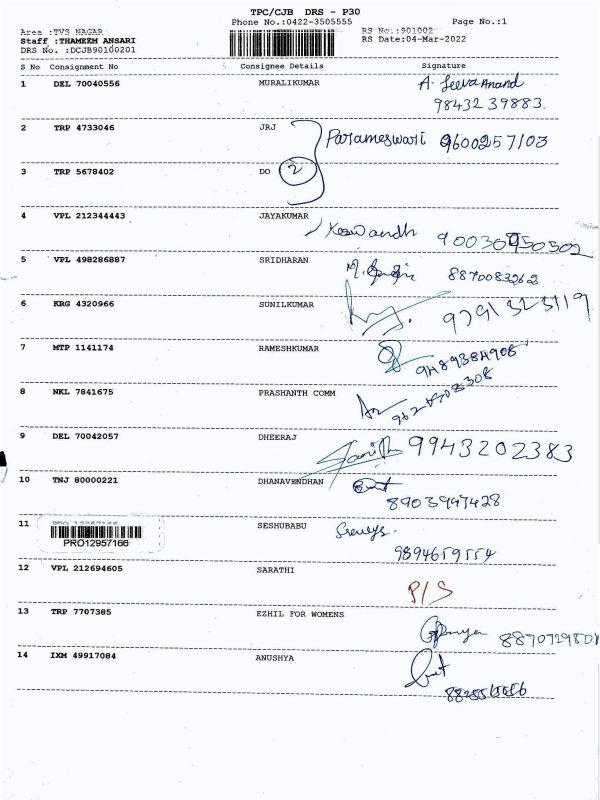 TPC/CJB DRS - P30
Phone No.:0422-3505555 Page No.:1
Area :TVS NAGAR RS No.:901002
Staff :THAMEEM ANSARI RS Date:04-Mar-2022
DRS No. :DCJB90100201
S No Consignment No Consignee Details Signature
1 DEL 70040556 MURALIKUMAR A. Jeeva Anand
9843239883.
2 TRP 4733046 JRJ Parameswari 9600257103
3 TRP 5678402 DO 2
4 VPL 212344443 JAYAKUMAR
5 VPL 498286887 SRIDHARAN 8870083262
6 KRG 4320966 SUNILKUMAR 9791323119
7 MTP 1141174 RAMESHKUMAR
8 NKL 7841675 PRASHANTH COMM
9 DEL 70042057 DHEERAJ 9943202383
10 TNJ 80000221 DHANAVENDHAN
8903997428
11 PRO 12957166 SESHUBABU
PRO12957166
9894659554
12 VPL 212694605 SARATHI
P/S
13 TRP 7707385 EZHIL FOR WOMENS
14 IXM 49917084 ANUSHYA